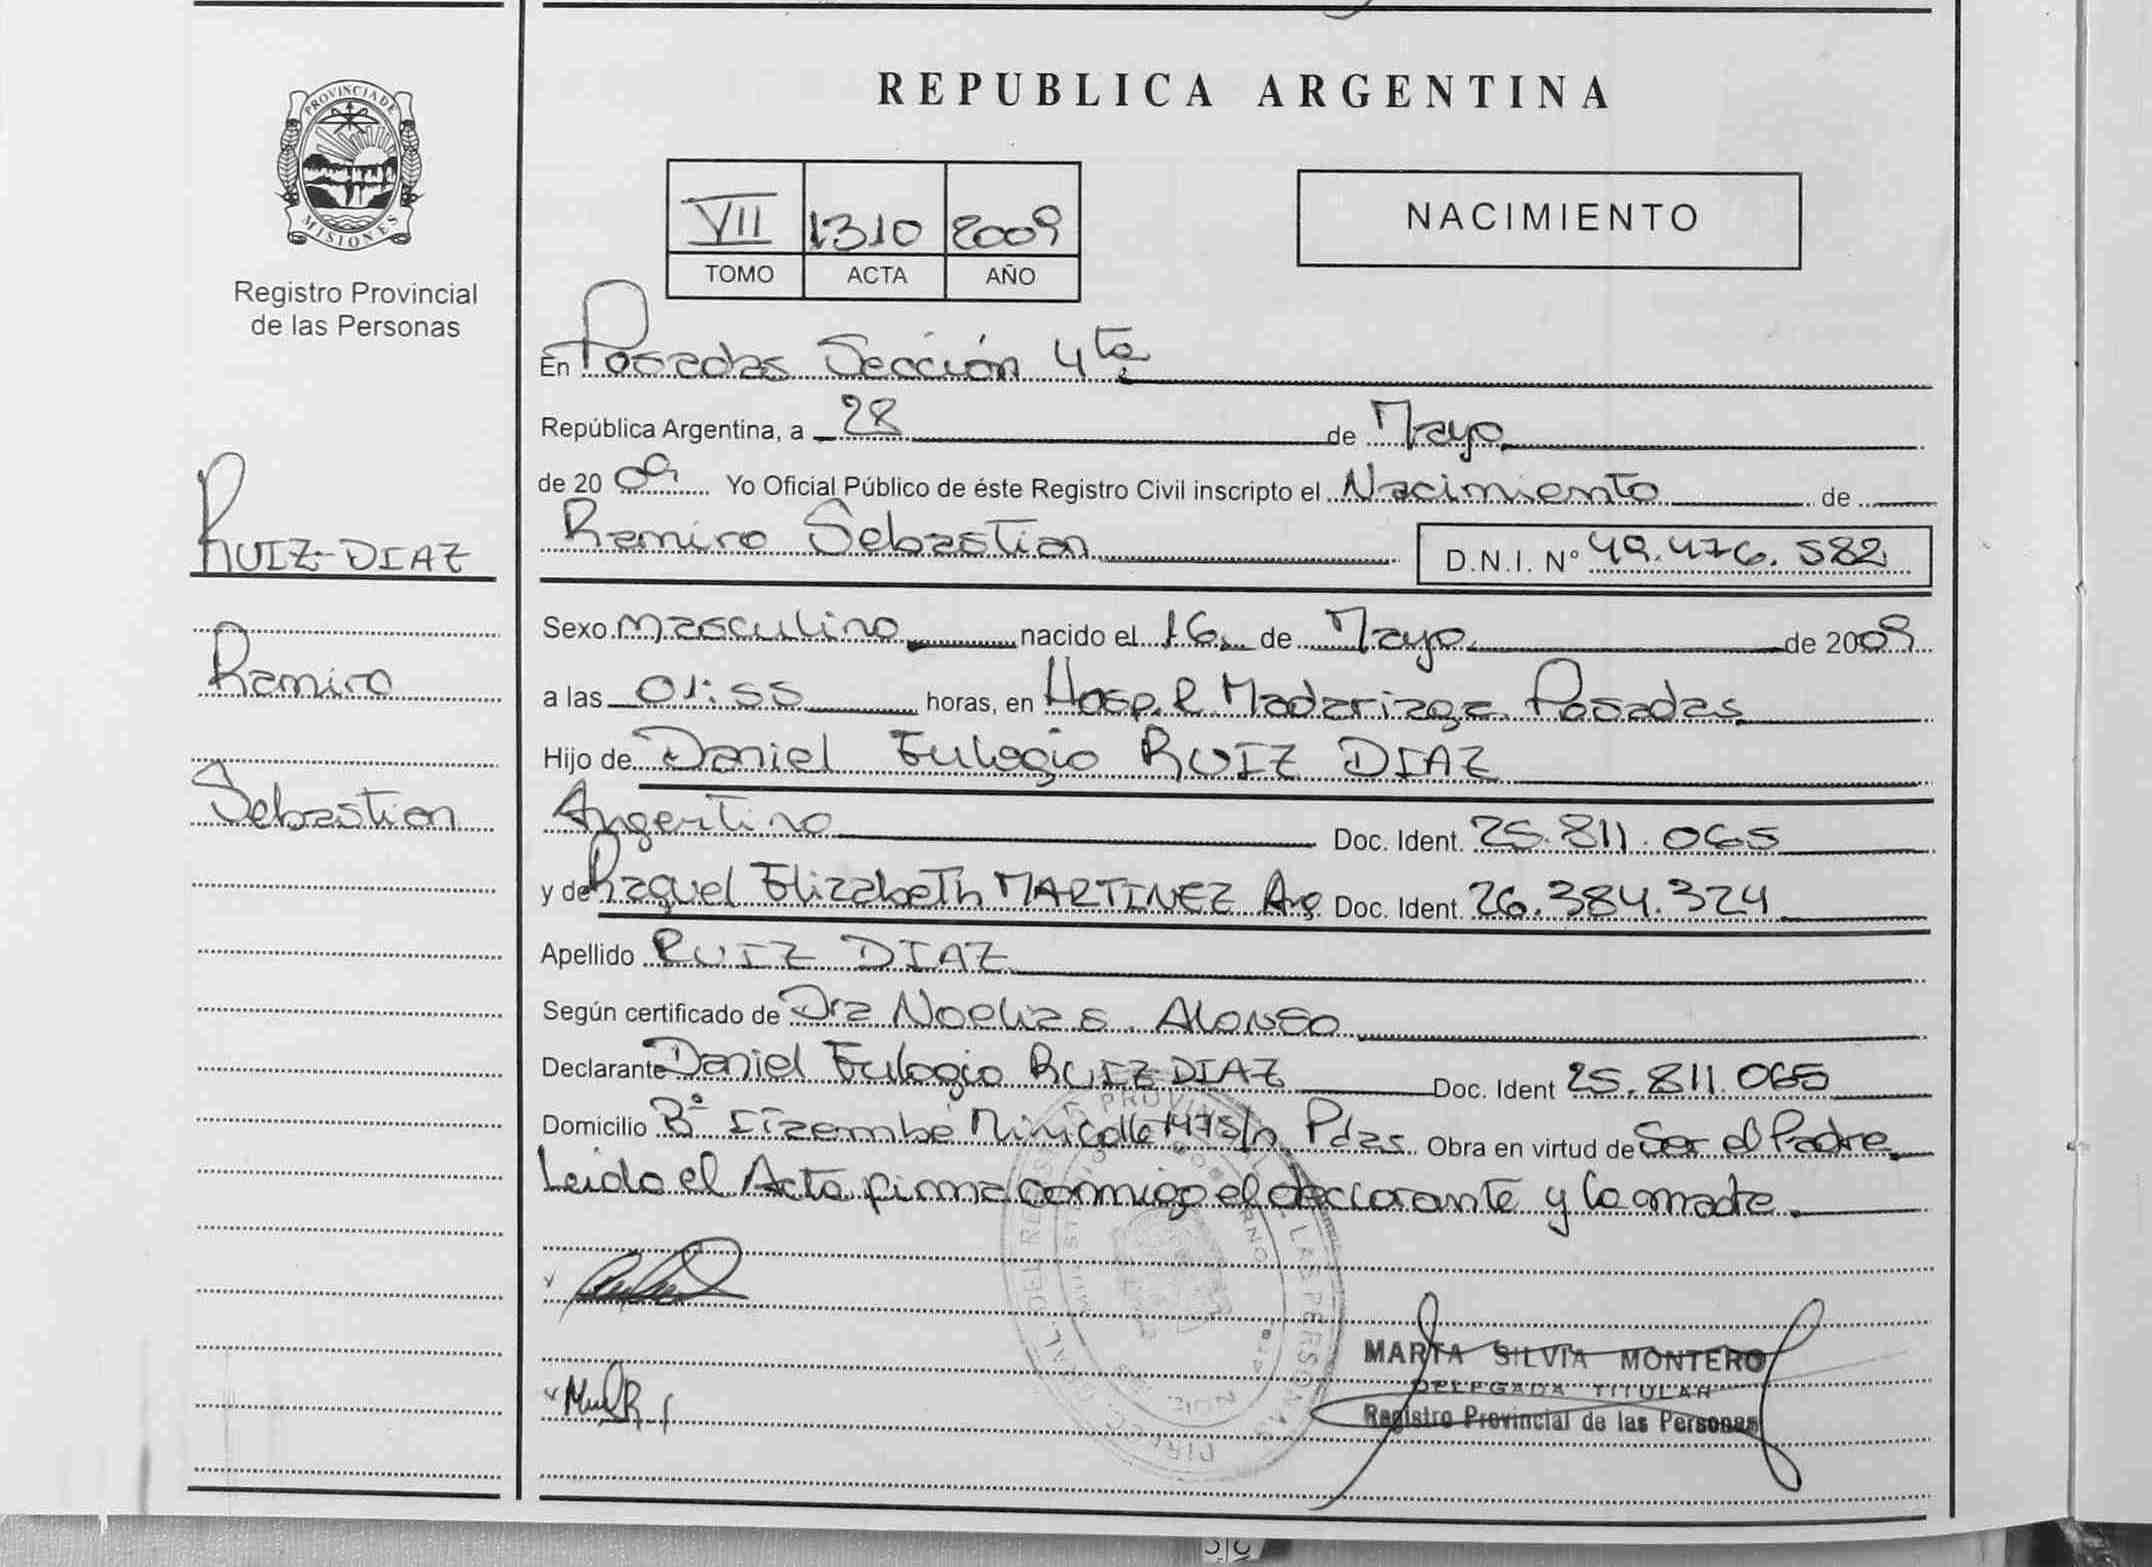 PROVINCIA DE
MISIONES
Registro Provincial
de las Personas
RUIZ-DIAZ
Ramiro
Sebastian
REPUBLICA ARGENTINA
VII 1310 2009
TOMO ACTA AÑO
NACIMIENTO
En Posadas Sección 4ta
República Argentina, a 28 de Mayo
de 2009 Yo Oficial Público de éste Registro Civil inscripto el Nacimiento de
Ramiro Sebastian D.N.I. Nº 49.476.582
Sexo masculino nacido el 16 de Mayo de 2009
a las 01:55 horas, en Hosp. R. Madariaga Posadas
Hijo de Daniel Eulogio RUIZ DIAZ
Argentino Doc. Ident. 25.811.065
y de Raquel Elizabeth MARTINEZ Arg. Doc. Ident. 26.384.324
Apellido RUIZ DIAZ
Según certificado de Dra Noelia S. Alonso
Declarante Daniel Eulogio RUIZ DIAZ Doc. Ident 25.811.065
Domicilio Bº Mini calle 147 S/n Pdas. Obra en virtud de Ser el Padre
Leido el Acta firma conmigo el declarante y la madre.
MARTA SILVIA MONTERO
DELEGADA TITULAR
Registro Provincial de las Personas